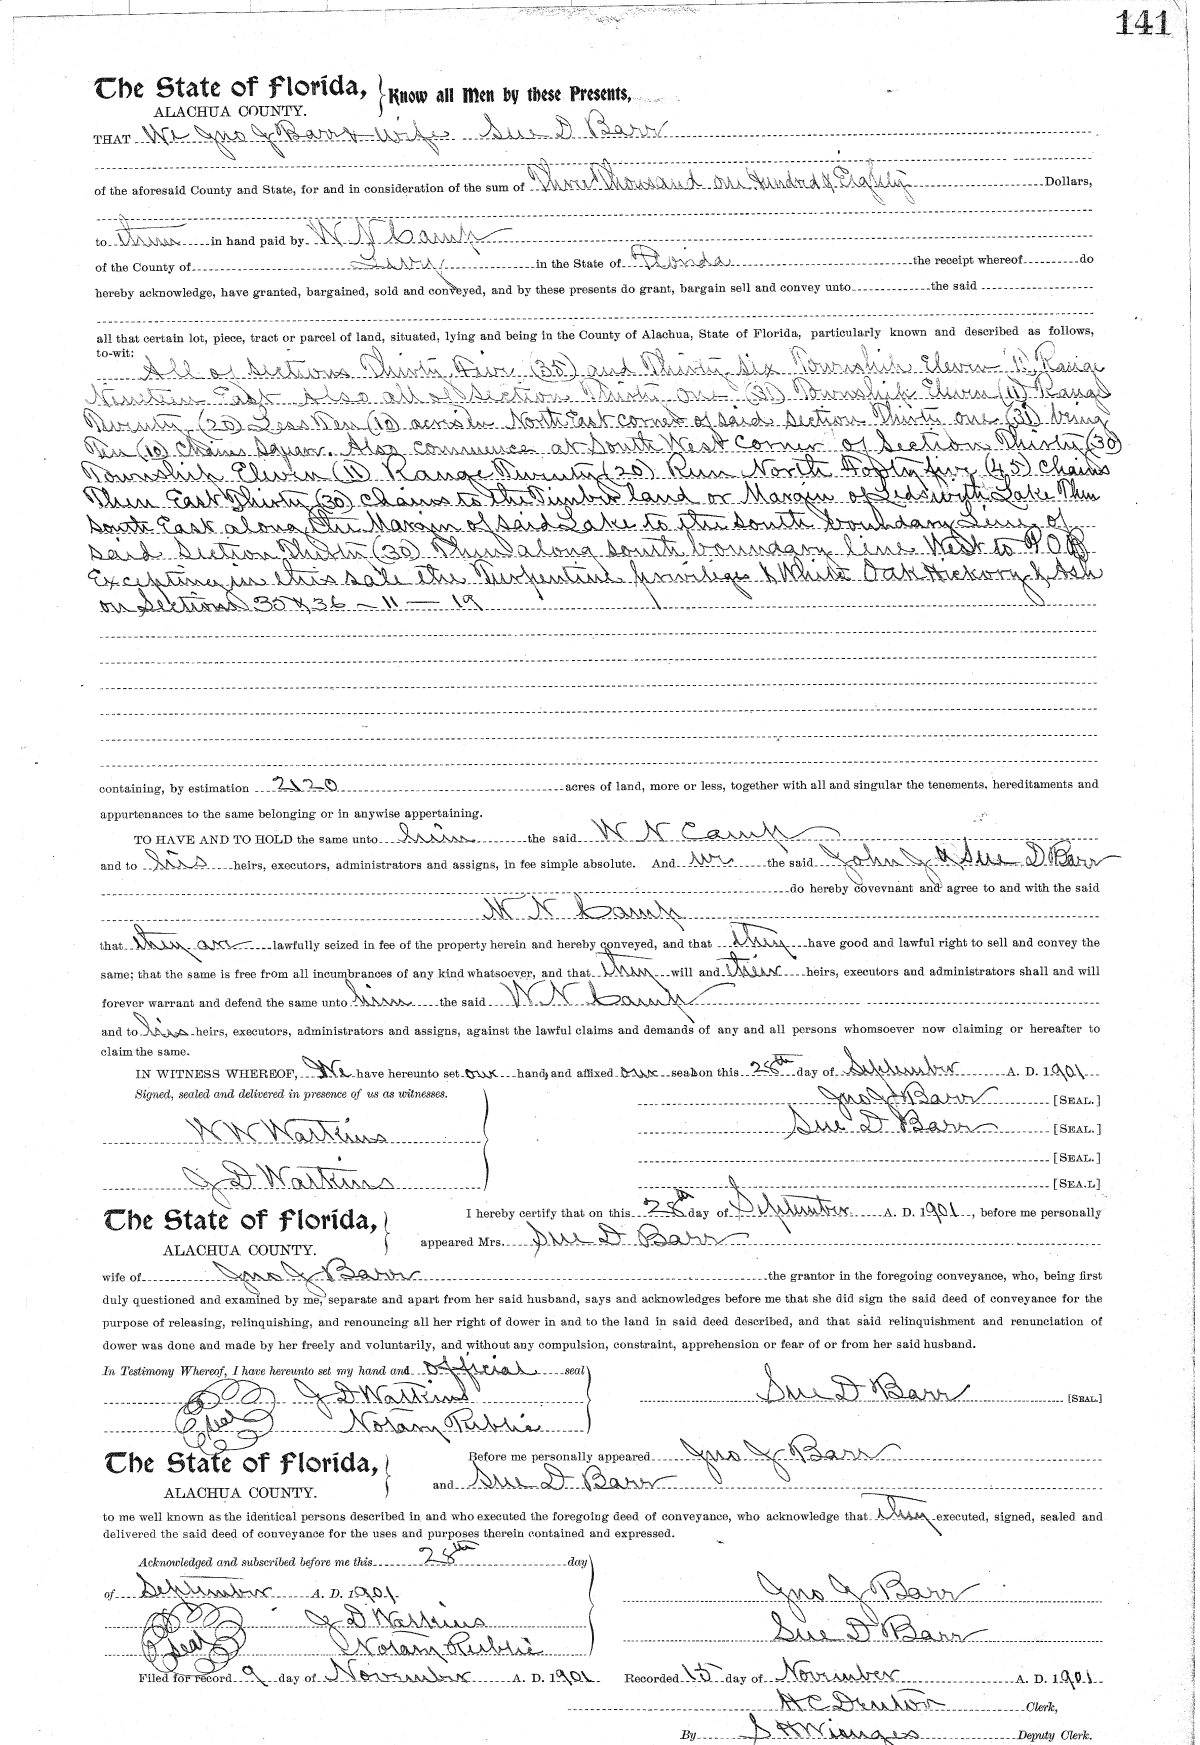 141
The State of Florida, Know all Men by these Presents,
ALACHUA COUNTY.
THAT We Jno J Barr & wife Sue D Barr
of the aforesaid County and State, for and in consideration of the sum of Three Thousand on Hundred & Eighty Dollars,
to them in hand paid by W N Camp
of the County of Levy in the State of Florida the receipt whereof do
hereby acknowledge, have granted, bargained, sold and conveyed, and by these presents do grant, bargain sell and convey unto the said
all that certain lot, piece, tract or parcel of land, situated, lying and being in the County of Alachua, State of Florida, particularly known and described as follows,
to-wit:
All of Sections Thirty Five (35) and Thirty Six Township Eleven 11, Range
Nineteen East. Also all of Section Thirty One (31) Township Eleven (11) Range
Twenty (20) Less Ten (10) acres in North East corner of said Section Thirty one (31) being
Ten (10) Chains Square. Also commence at South West corner of Section Thirty (30)
Township Eleven (11) Range Twenty (20) Run North Forty five (45) chains
Then East Thirty (30) chains to the Timber land or Margin of Ledswith Lake Then
South East along the Margin of said Lake to the south boundary Line of
said Section Thirty (30) Then along south boundary line West to P.O.B
Excepting in this sale the Turpentine privileges & White Oak Hickory & Ash
on Sections 35 & 36 - 11 - 19
containing, by estimation 2120 acres of land, more or less, together with all and singular the tenements, hereditaments and
appurtenances to the same belonging or in anywise appertaining.
TO HAVE AND TO HOLD the same unto him the said W N Camp
and to his heirs, executors, administrators and assigns, in fee simple absolute. And we the said John J & Sue D Barr
do hereby covevnant and agree to and with the said
W N Camp
that they are lawfully seized in fee of the property herein and hereby conveyed, and that they have good and lawful right to sell and convey the
same; that the same is free from all incumbrances of any kind whatsoever, and that they will and their heirs, executors and administrators shall and will
forever warrant and defend the same unto him the said W N Camp
and to his heirs, executors, administrators and assigns, against the lawful claims and demands of any and all persons whomsoever now claiming or hereafter to
claim the same.
IN WITNESS WHEREOF, We have hereunto set our hand, and affixed our seal on this 28th day of September A. D. 1901
Signed, sealed and delivered in presence of us as witnesses. Jno J Barr [SEAL.]
W W Watkins Sue D Barr [SEAL.]
[SEAL.]
J D Watkins [SEA.L]
The State of Florida, I hereby certify that on this 28th day of September A. D. 1901, before me personally
ALACHUA COUNTY. appeared Mrs. Sue D Barr
wife of Jno J Barr the grantor in the foregoing conveyance, who, being first
duly questioned and examined by me, separate and apart from her said husband, says and acknowledges before me that she did sign the said deed of conveyance for the
purpose of releasing, relinquishing, and renouncing all her right of dower in and to the land in said deed described, and that said relinquishment and renunciation of
dower was done and made by her freely and voluntarily, and without any compulsion, constraint, apprehension or fear of or from her said husband.
In Testimony Whereof, I have hereunto set my hand and official seal
J D Watkins Sue D Barr [SEAL]
Seal Notary Public
The State of Florida, Before me personally appeared Jno J Barr
ALACHUA COUNTY. and Sue D Barr
to me well known as the identical persons described in and who executed the foregoing deed of conveyance, who acknowledge that they executed, signed, sealed and
delivered the said deed of conveyance for the uses and purposes therein contained and expressed.
Acknowledged and subscribed before me this 28th day
of September A. D. 1901 Jno J Barr
J D Watkins Sue D Barr
Seal Notary Public
Filed for record 9 day of November A. D. 1901 Recorded 15 day of November A. D. 1901
H C Denton Clerk,
By S H Wienges Deputy Clerk.